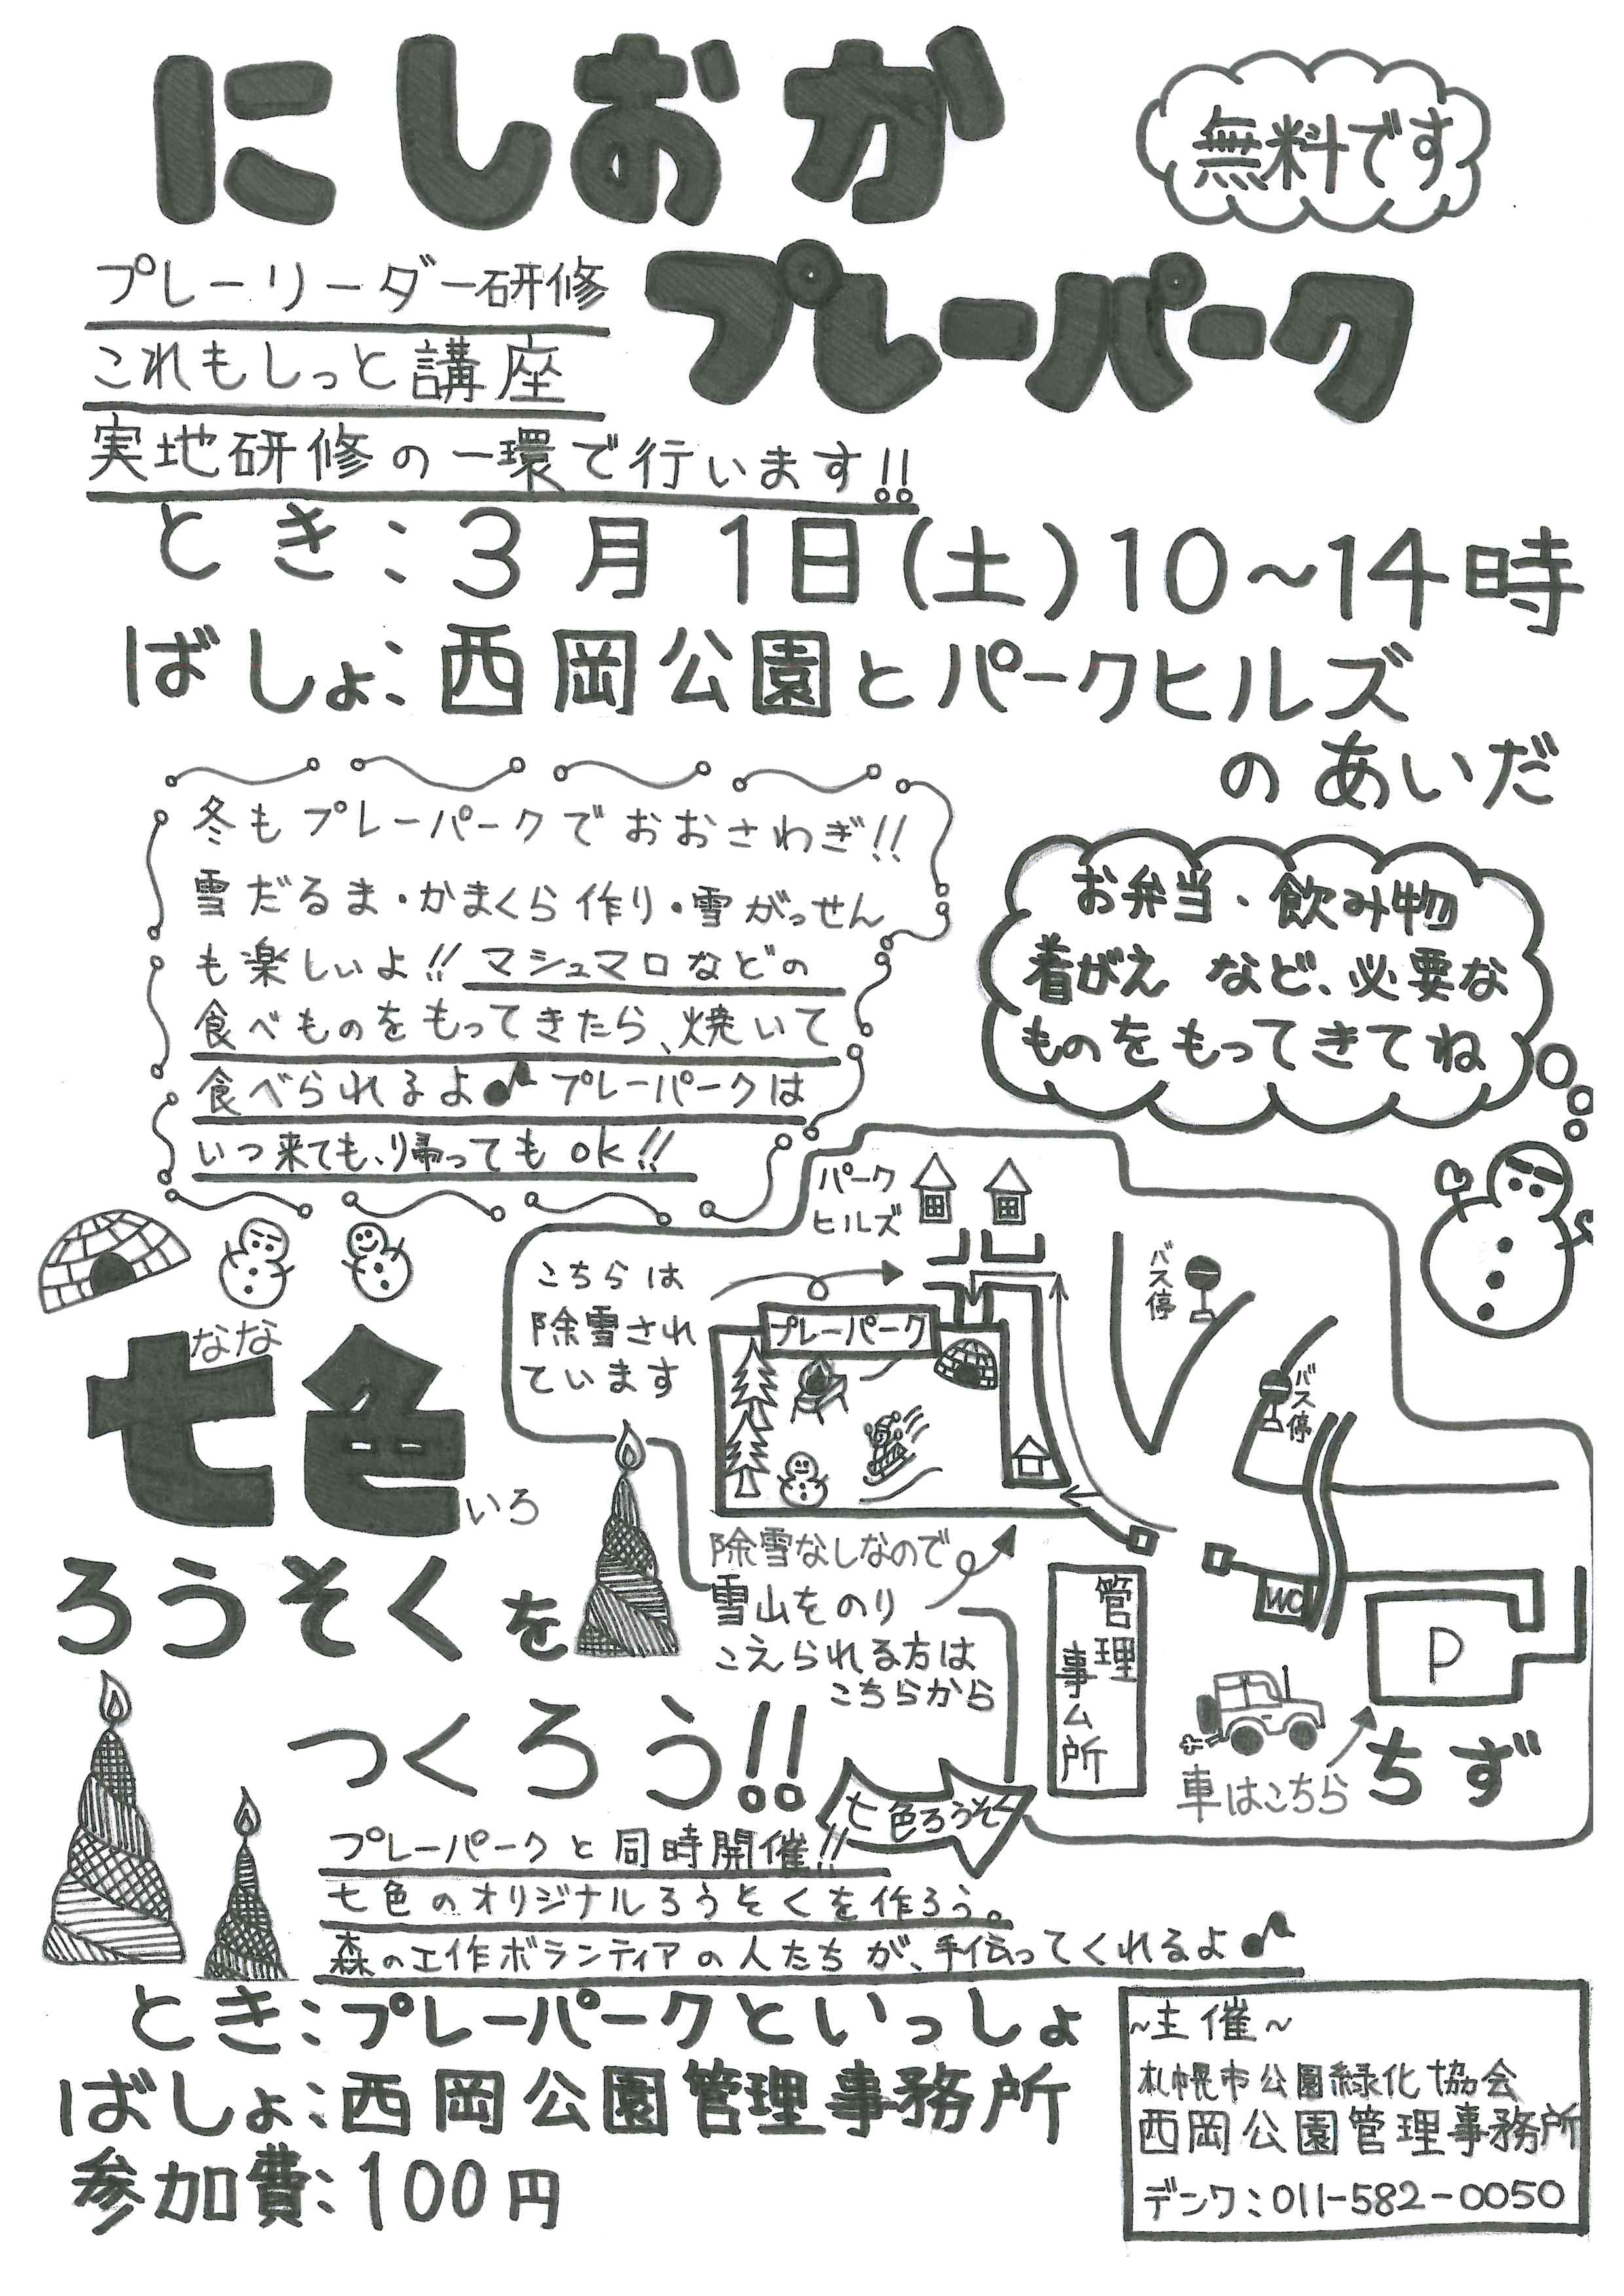 にしおか
無料です
プレーパーク
プレーリーダー研修
これもしっと講座
実地研修の一環で行います!!
とき:3月1日(土)10~14時
ばしょ:西岡公園とパークヒルズ
のあいだ
冬もプレーパークでおおさわぎ!!
雪だるま・かまくら作り・雪がっせん
も楽しいよ!!マシュマロなどの
食べものをもってきたら、焼いて
食べられるよ♪プレーパークは
いつ来ても、帰ってもok!!
お弁当、飲み物
着がえ など、必要な
ものをもってきてね
パーク
ヒルズ
こちらは
除雪され
ています
プレーパーク
バス停
バス停
除雪なしなので
雪山をのり
こえられる方は
こちらから
管理事ム所
WC
P
車はこちら
ちず
七色ろうそく
なな
七色
いろ
ろうそくを
つくろう!!
プレーパークと同時開催!!
七色のオリジナルろうそくを作ろう。
森の工作ボランティアの人たちが、手伝ってくれるよ♪
とき:プレーパークといっしょ
ばしょ:西岡公園管理事務所
参加費:100円
~主催~
札幌市公園緑化協会
西岡公園管理事務所
デンワ:011-582-0050